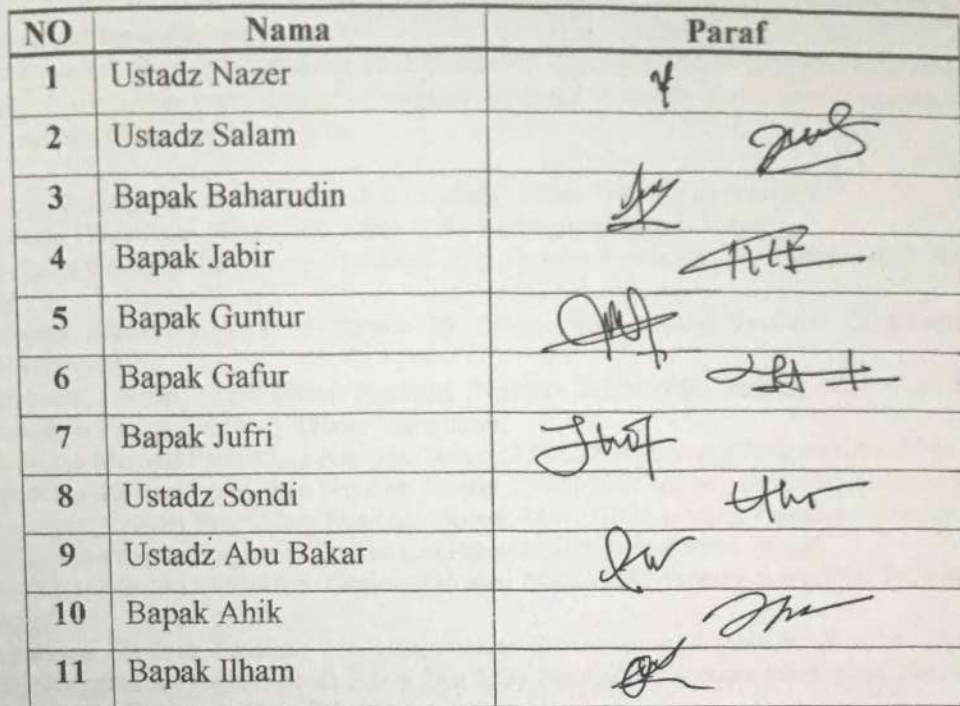 NO Nama Paraf
1 Ustadz Nazer
2 Ustadz Salam
3 Bapak Baharudin
4 Bapak Jabir
5 Bapak Guntur
6 Bapak Gafur
7 Bapak Jufri
8 Ustadz Sondi
9 Ustadz Abu Bakar
10 Bapak Ahik
11 Bapak Ilham